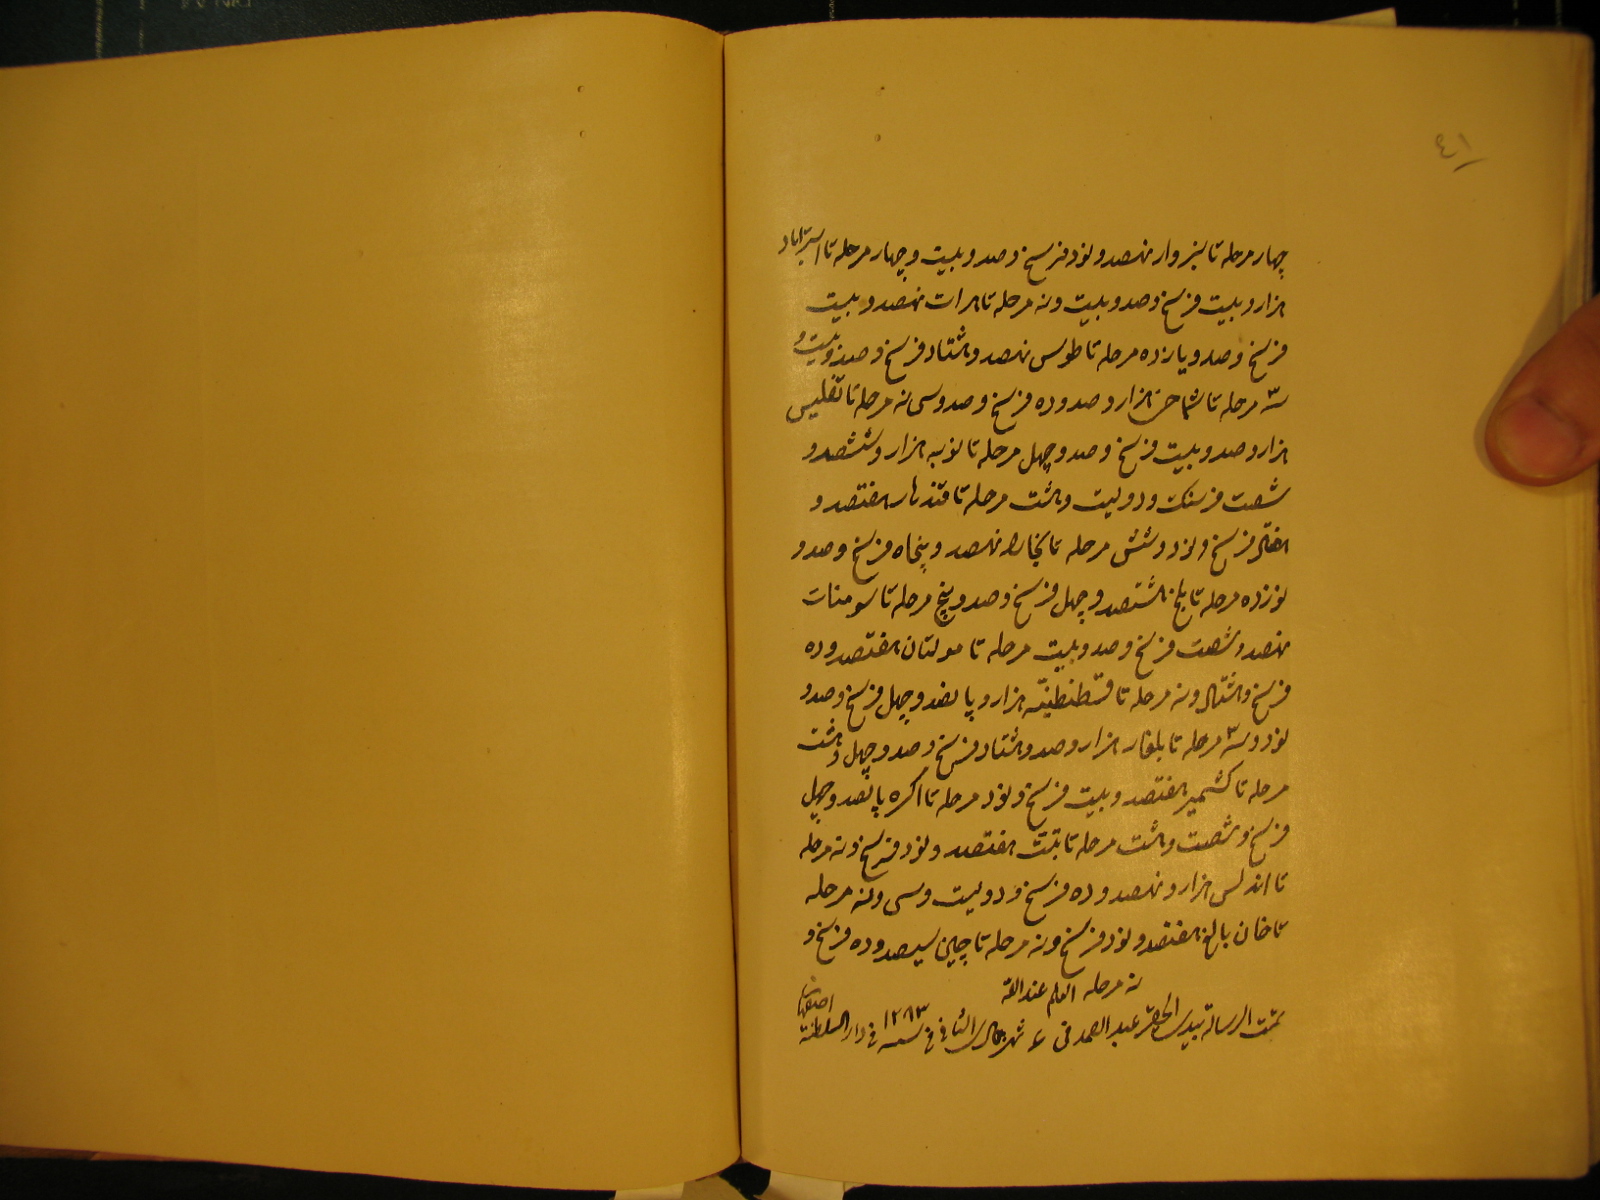 ٤١
چهار مرحله تا سبزوار نهصد و نود فرسخ و صد و بیست و چهار مرحله تا استراباد
هزار و بیست فرسخ و صد و بیست و نه مرحله تا هرات نهصد و بیست
فرسخ و صد و پانزده مرحله تا طوس نهصد و هشتاد فرسخ و صد و بیست و
سه مرحله تا شماخی هزار و صد و ده فرسخ و صد و سی نه مرحله تا تفلیس
هزار و صد و بیست فرسخ و صد و چهل مرحله تا نوبه هزار و ششصد و
شصت فرسنک و دویست و هشت مرحله تا قندهار هفتصد و
هفتاد فرسخ و نود و شش مرحله تا بخارا نهصد و پنجاه فرسخ و صد و
نوزده مرحله تا بلخ هشتصد و چهل فرسخ و صد و پنج مرحله تا سومنات
نهصد و شصت فرسخ و صد و بیست مرحله تا مولتان هفتصد و ده
فرسخ و هشتاد و نه مرحله تا قسطنطنیه هزار و پانصد و چهل فرسخ و صد و
نود و سه مرحله تا بلغار هزار و صد و هشتاد فرسخ و صد و چهل و هشت
مرحله تا کشمیر هفتصد و بیست فرسخ و نود مرحله تا اکره پانصد و چهل
فرسخ و شصت و هشت مرحله تا تبت هفتصد و نود فرسخ و نه مرحله
تا اندلس هزار و نهصد و ده فرسخ و دویست و سی و نه مرحله
تا خان بالغ هفتصد و نود فرسخ و نه مرحله تا چین سیصد و ده فرسخ و
نه مرحله العلم عند الله
تمت الرساله بید الحقیر عبد الصمد فی ٤ شهر جمادی الثانی فی سنه ١٢٨٣ فی دار السلطنة اصفهان